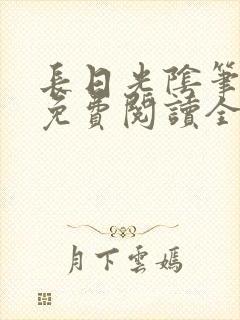 長日光陰筆
免費閱讀全
月下雲嫣